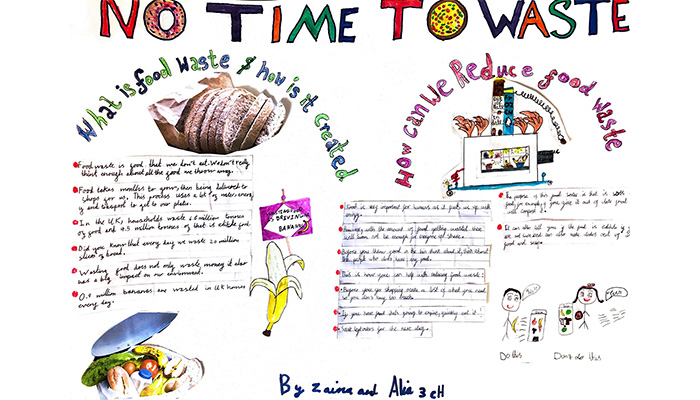 NO TIME TO WASTE
What is food waste & how is it created
How can we Reduce food waste
Food waste is food that we don't eat. We don't really
think enough about all the food we throw away.
Food takes months to grow, then being delivered to
shops for us. This process uses a lot of water, energ
y and transport to get to our plate.
In the U.K, households waste 6.6 million tonnes
of food and 4.5 million tonnes of that is edible food.
Did you know that every day we waste 20 million
slices of bread.
Wasting food does not only waste money it also
has a big impact on our environment.
0.9 million bananas are wasted in UK homes
every day.
BANANAS
Food is very important for humans as it fuels us up with
energy.
with the amount of food getting wasted there
will soon not be enough for everyone to share.
Before you throw food in the bin think about it, think about
the people who don't have any food.
This is how you can help with reducing food waste:
Before you go shopping make a list of what you need
so you don't buy too much.
If you have food that's going to expire, quickly eat it!
Save leftovers for the next day.
The purpose of this food
food for example if you give it out of date food
will compost it.
It can also tell you if the food is edible
Do this
Don't do this
By Zaina and Alia 3CH